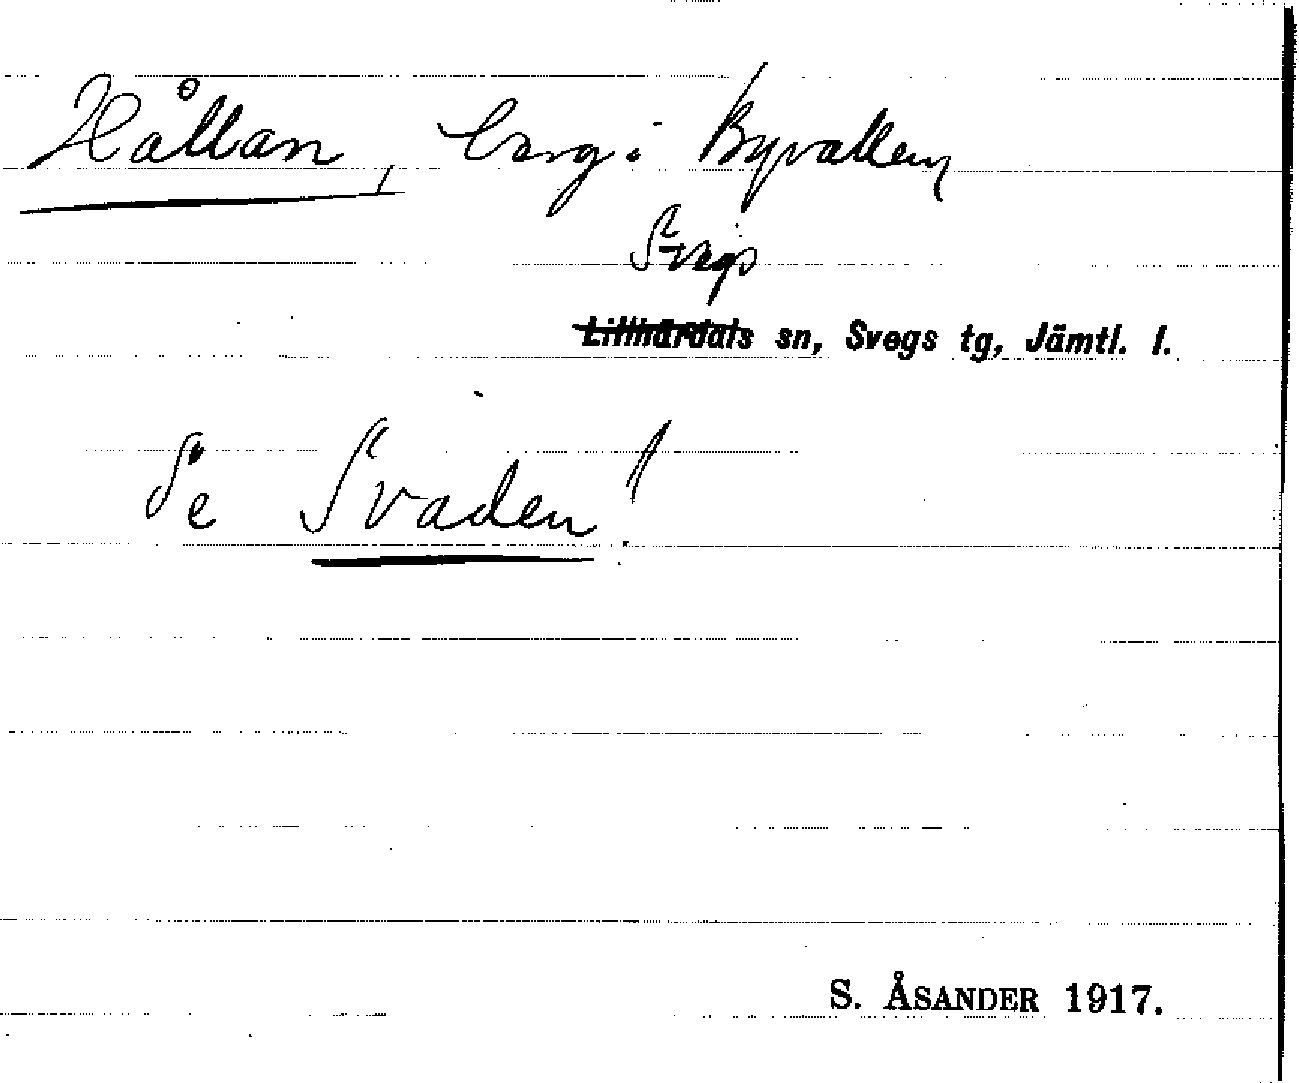 Hållan, berg i Byvallen
Svegs
Lillhärdals sn, Svegs tg, Jämtl. l.
Se Svaden!
S. ÅSANDER 1917.